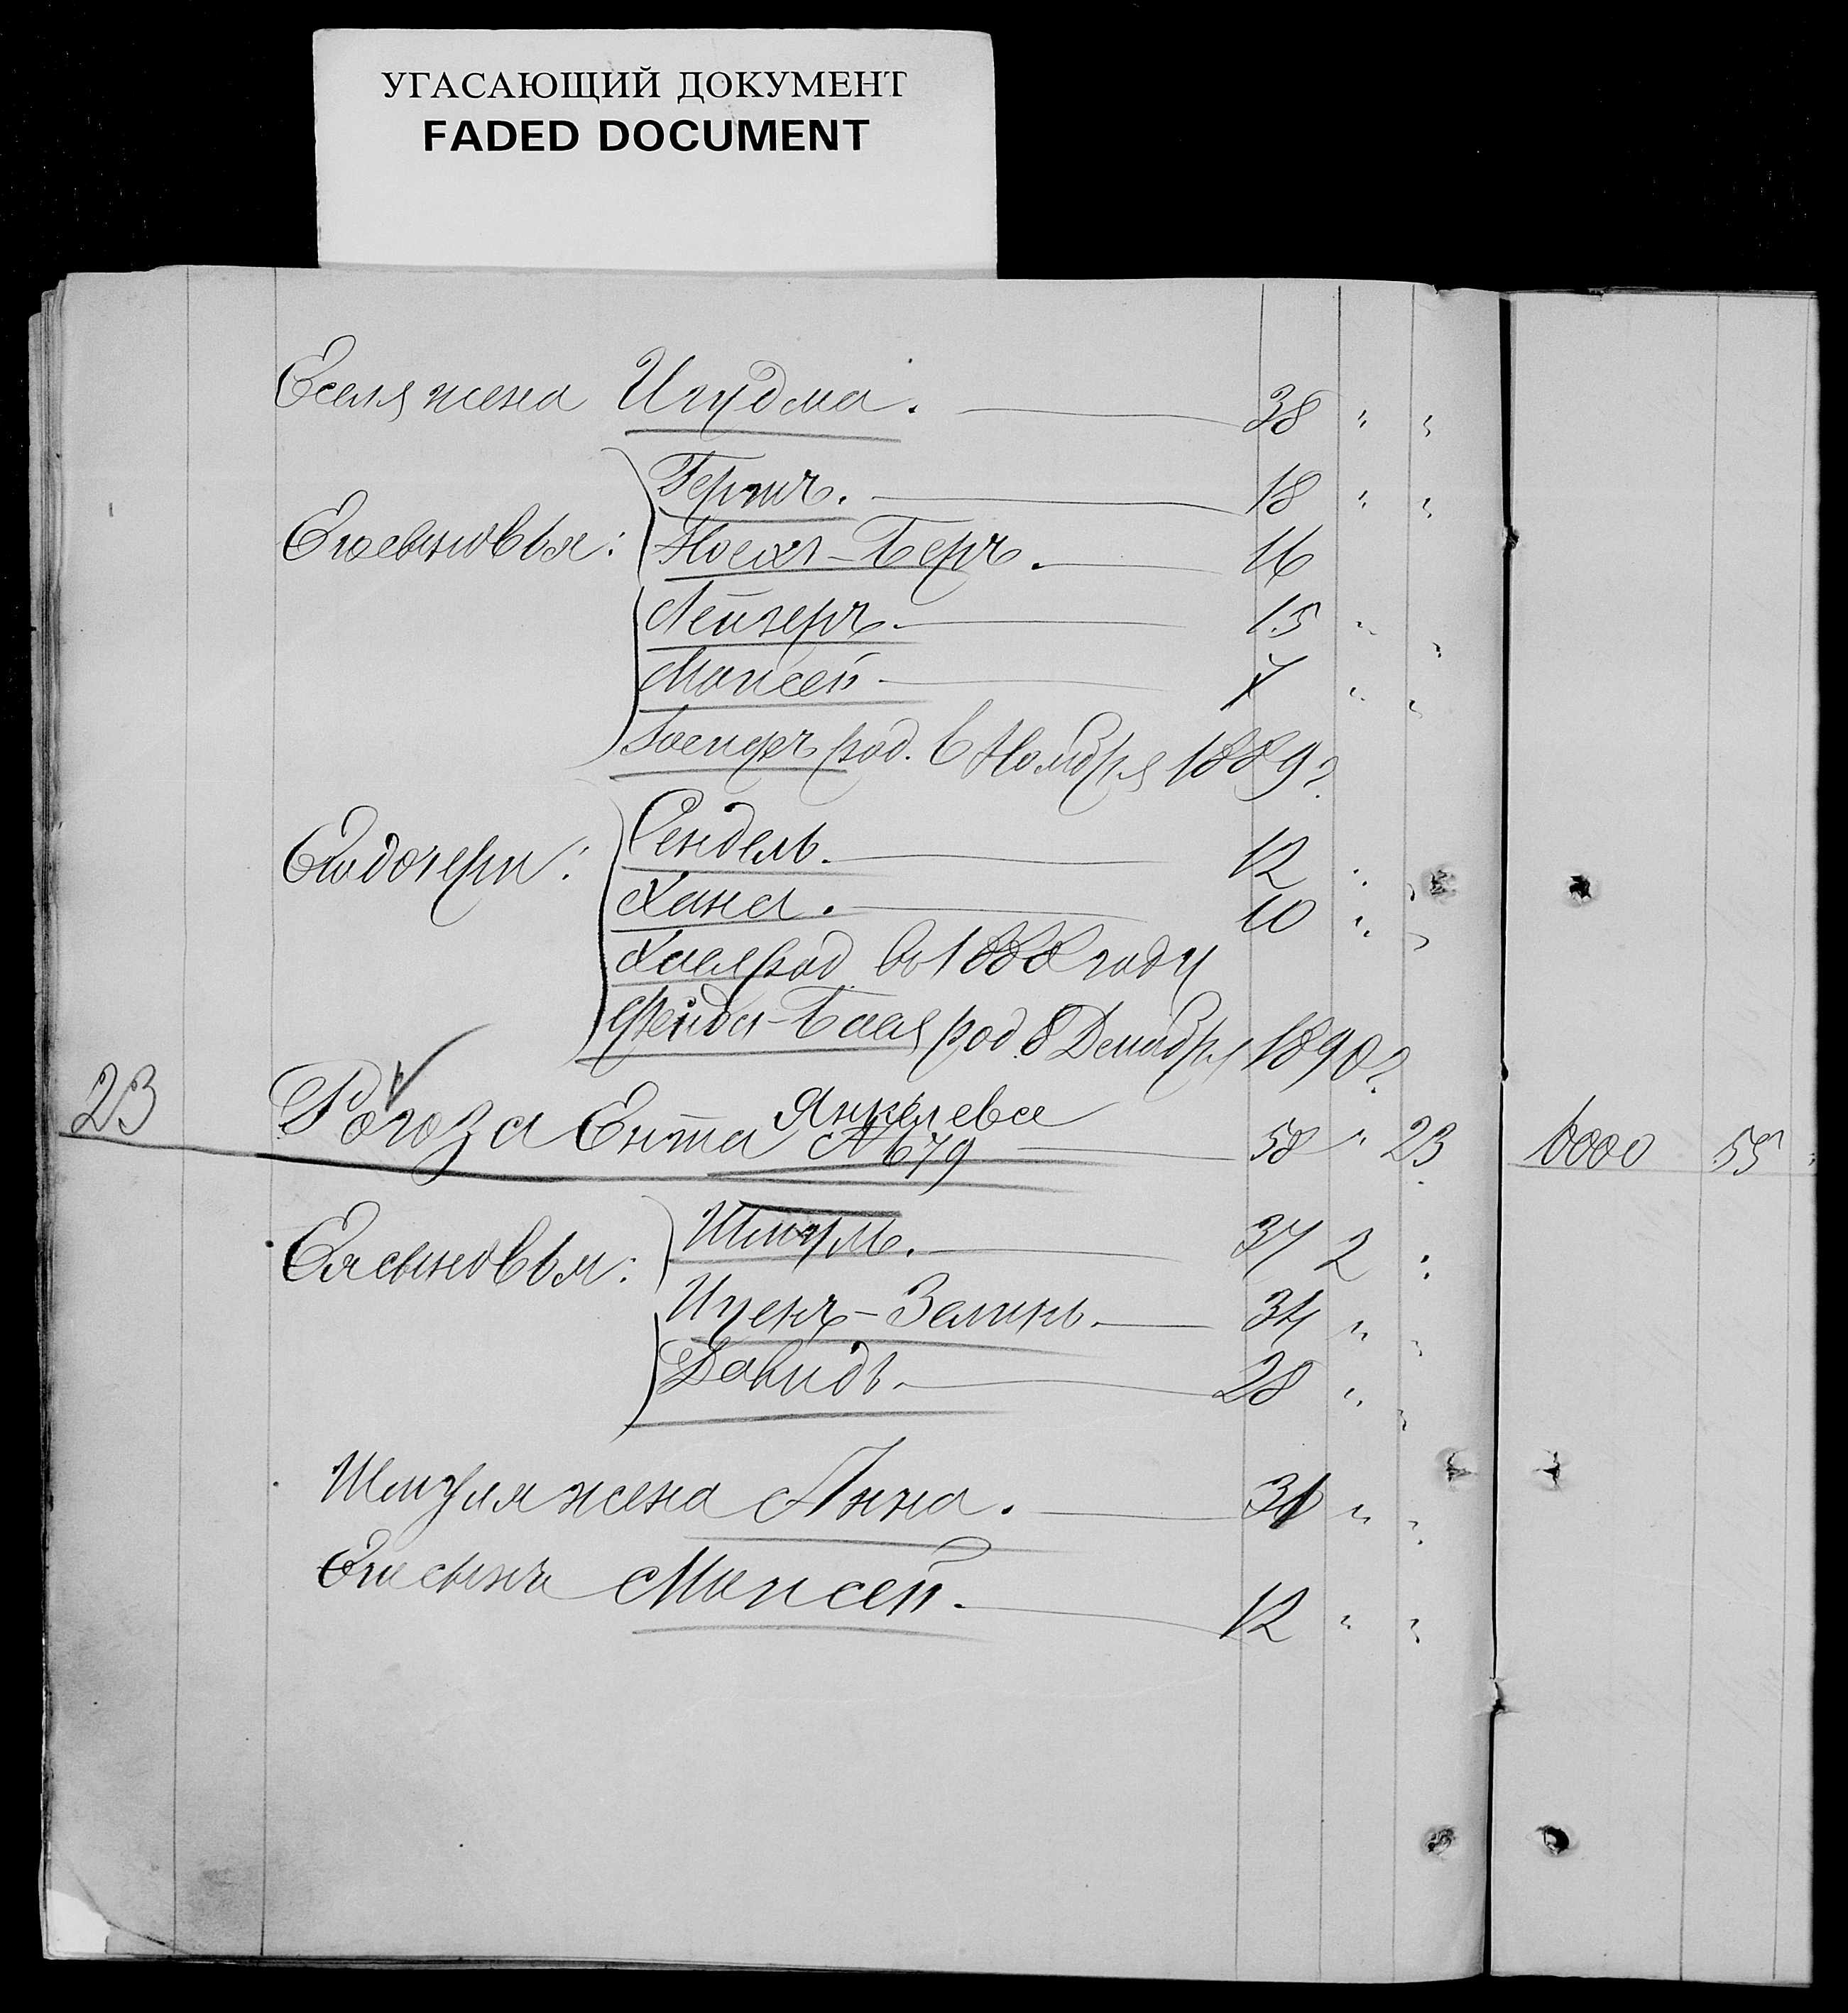 УГАСАЮЩИЙ ДОКУМЕНТ
FADED DOCUMENT
жена 38 " "
Его сыновья: Гершъ. 18 " "
Беръ. 16
Лейзеръ. 15 " "
Моисей 7 " "
род. 6 Ноября 1889 г.
Его дочери: Сендель. 12 " "
Хана. 10 " "
Хая род. въ 1888 году
род. 8 Декабря 1890 г.
23 Рогоза Ента Янкелева 58 " 23 6000 55
№ 679
Ея сыновья: Шмуль. 37 2 "
Ицекъ-Зеликъ. 34 " "
Давидъ. 28 " "
Шмуля жена Анна. 31 " "
Его сынъ Моисей. 12 " "